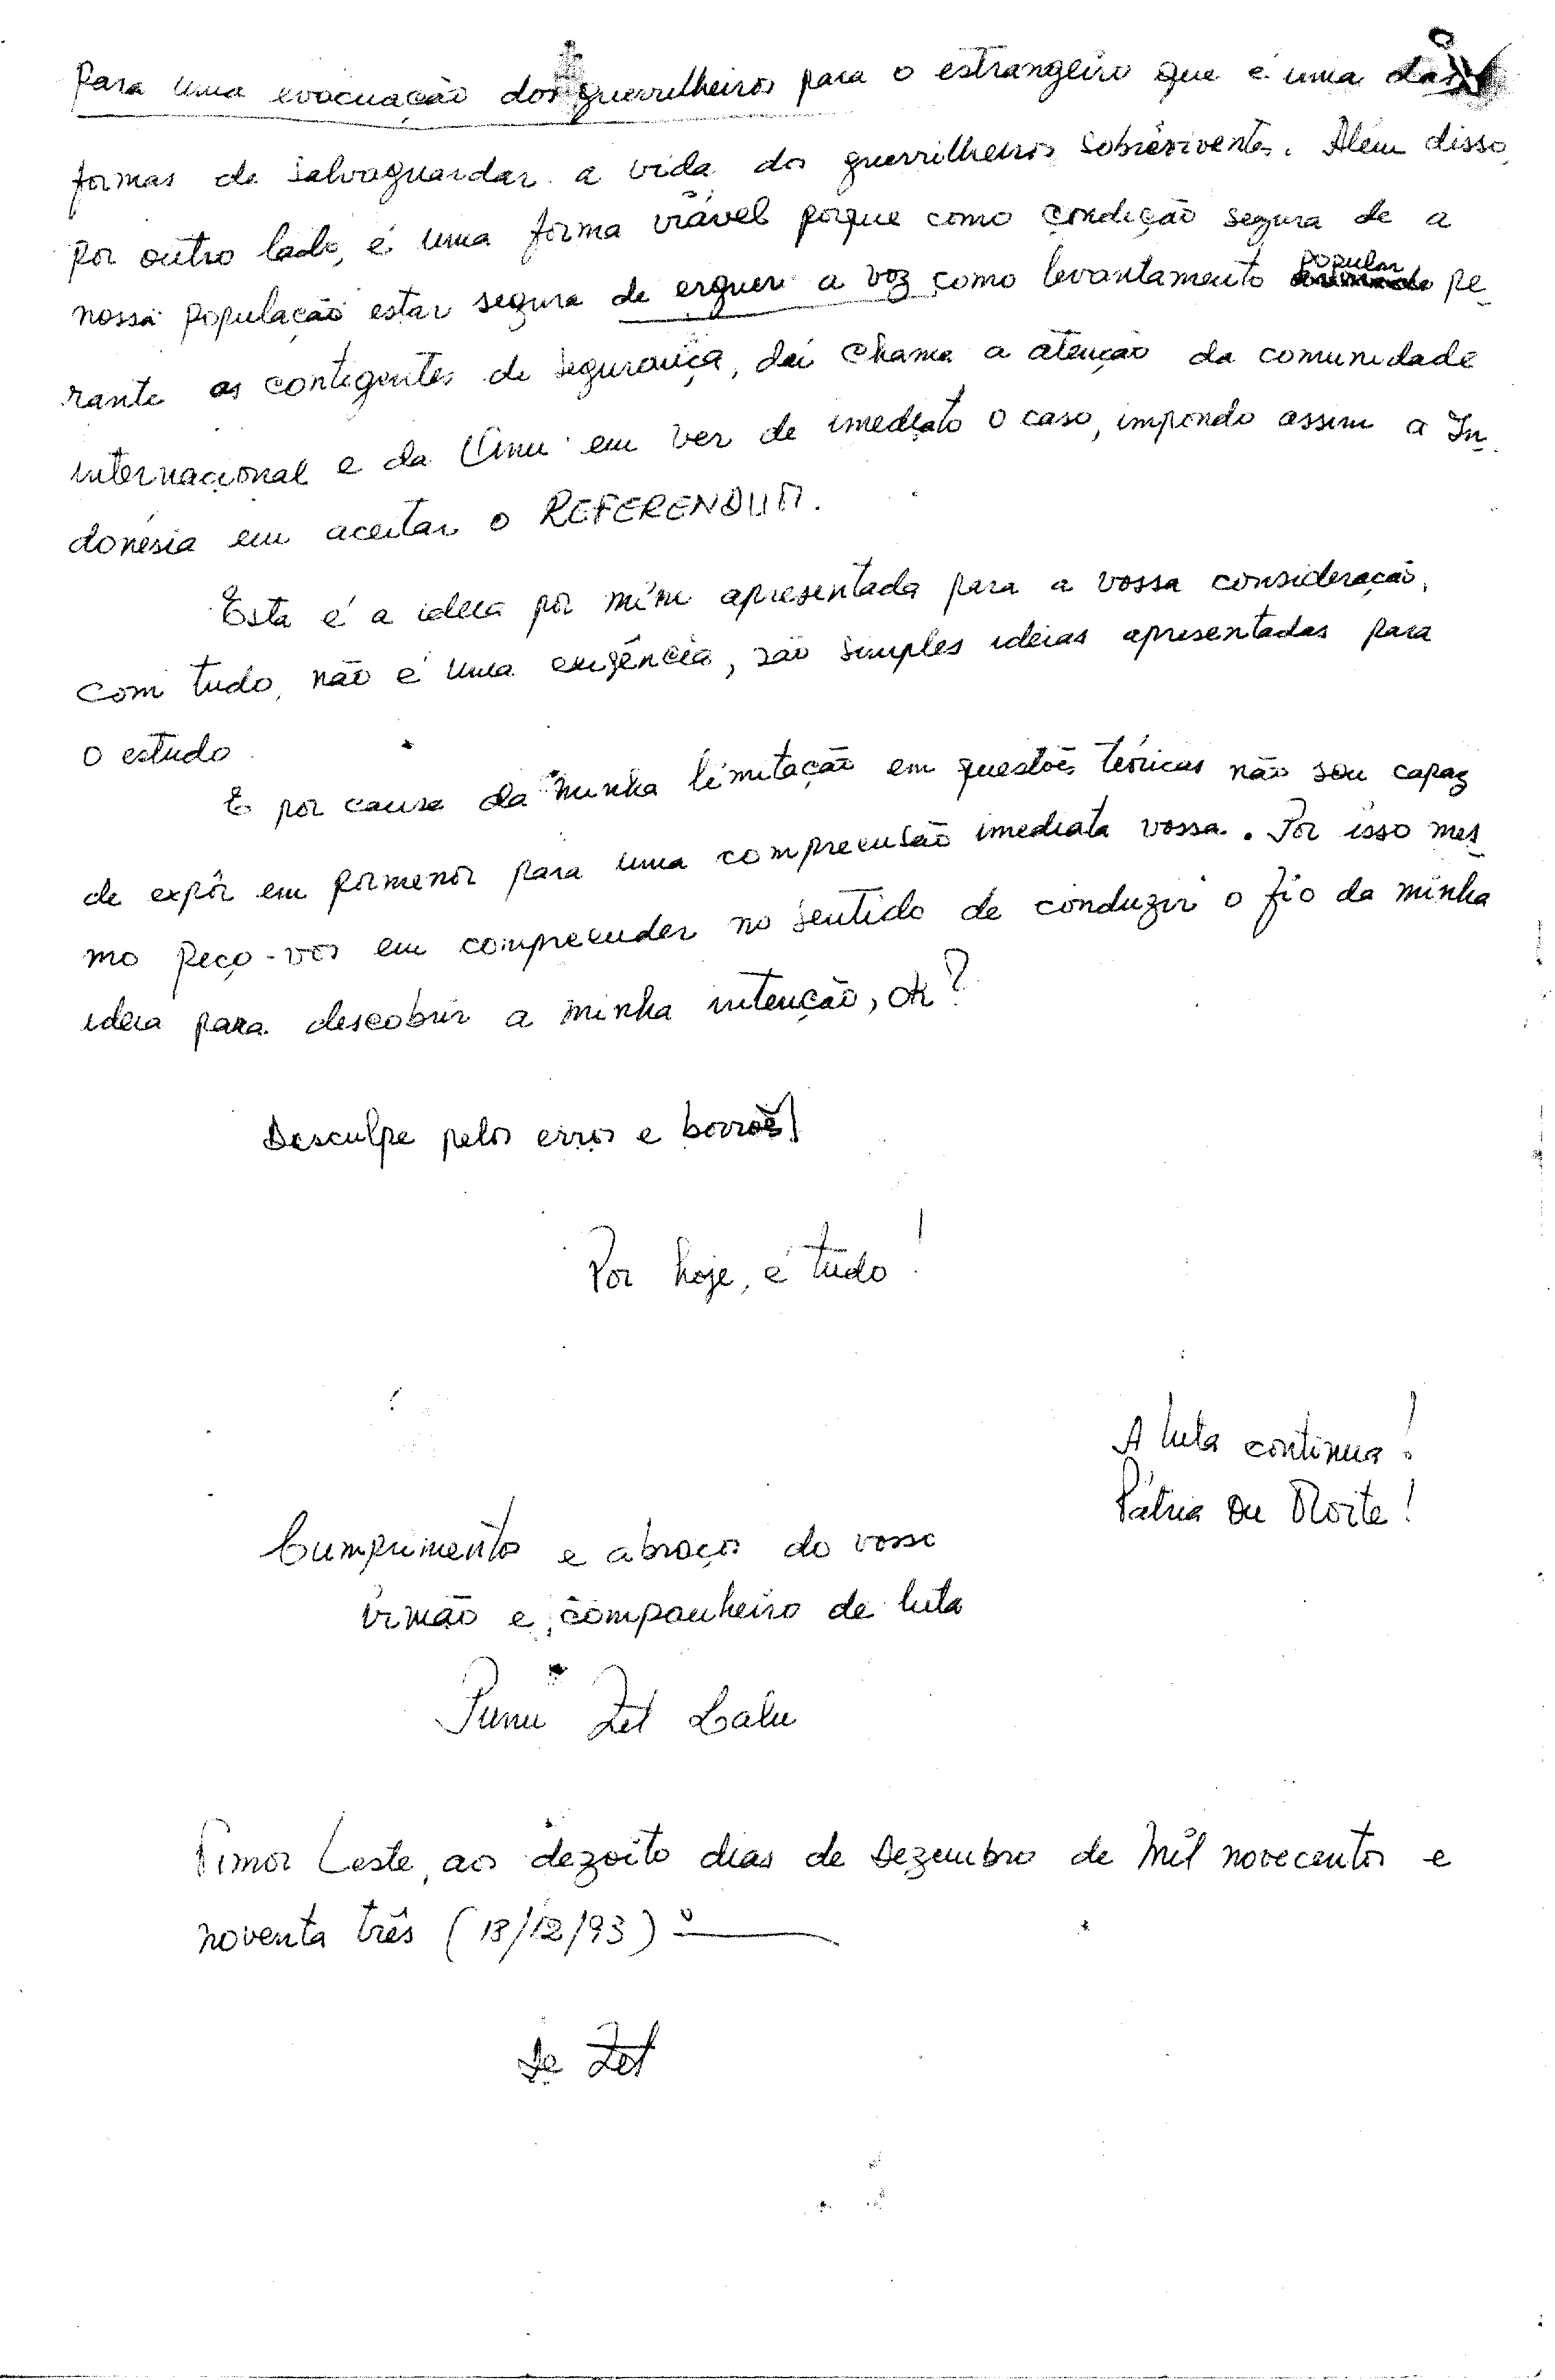 Para uma evacuação dos guerrilheiros para o estrangeiro que é uma das
formas de salvaguardar a vida dos guerrilheiros sobreviventes. Além disso,
por outro lado, é uma forma viável porque como condição segura de a
nossa população estar segura de erguer a voz como levantamento popular pe-
rante os contigentes de segurança, daí chama a atenção da comunidade
internacional e da Onu em ver de imediato o caso, impondo assim a In-
donésia em aceitar o REFERENDUM.
Esta é a ideia por mim apresentada para a vossa consideração,
com tudo, não é uma exigência, são simples ideias apresentadas para
o estudo.
E por causa da minha limitação em questões teóricas não sou capaz
de expôr em pormenor para uma compreensão imediata vossa. Por isso mes-
mo peço-vos em compreender no sentido de conduzir o fio da minha
ideia para descobrir a minha intenção, ok?
Desculpe pelos erros e borrões!
Por hoje, é tudo!
A luta continua!
Pátria ou Morte!
Cumprimentos e abraços do vosso
irmão e companheiro de luta
Zet
Timor Leste, aos dezoito dias de Dezembro de Mil novecentos e
noventa três (18/12/93)
Zet